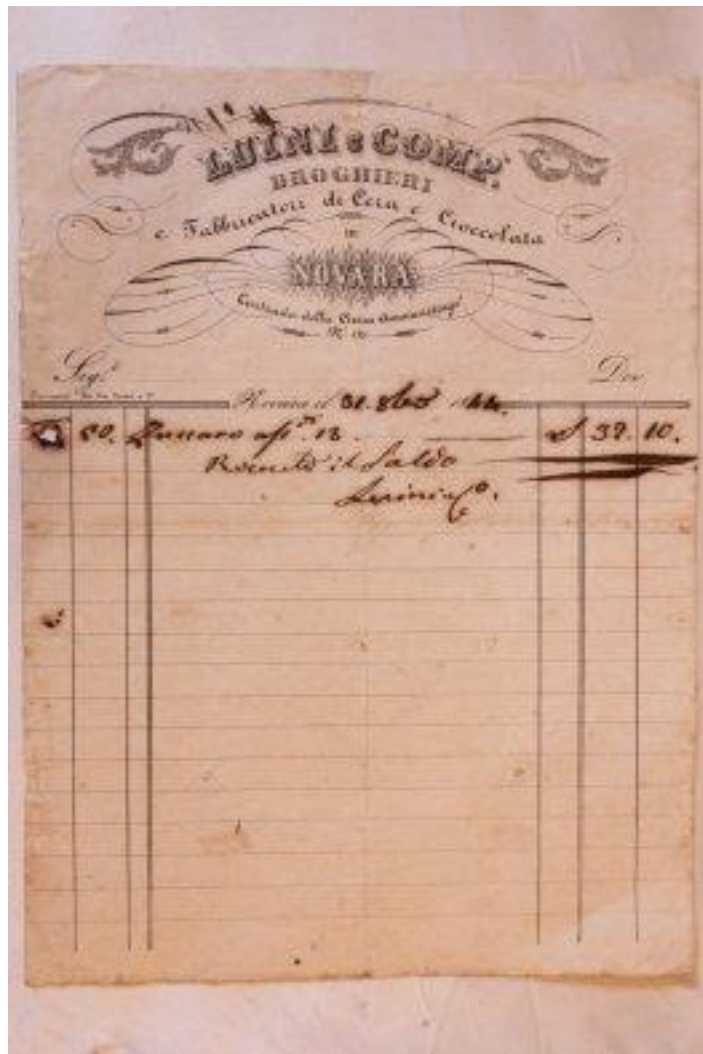 LUINI e COMP.
DROGHIERI
e Fabbricatori di Cera e Cioccolata
IN
NOVARA
Contrada della
N.
Sig.r Dev
Novara il 31. 8bre 1844.
50. 12 39. 10.
Ricevuto il Saldo
Luini e Co.